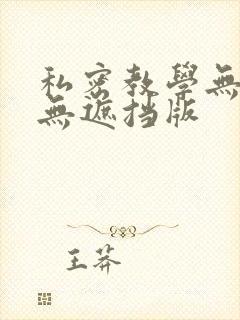 私密教學無
無遮挡版
王莽